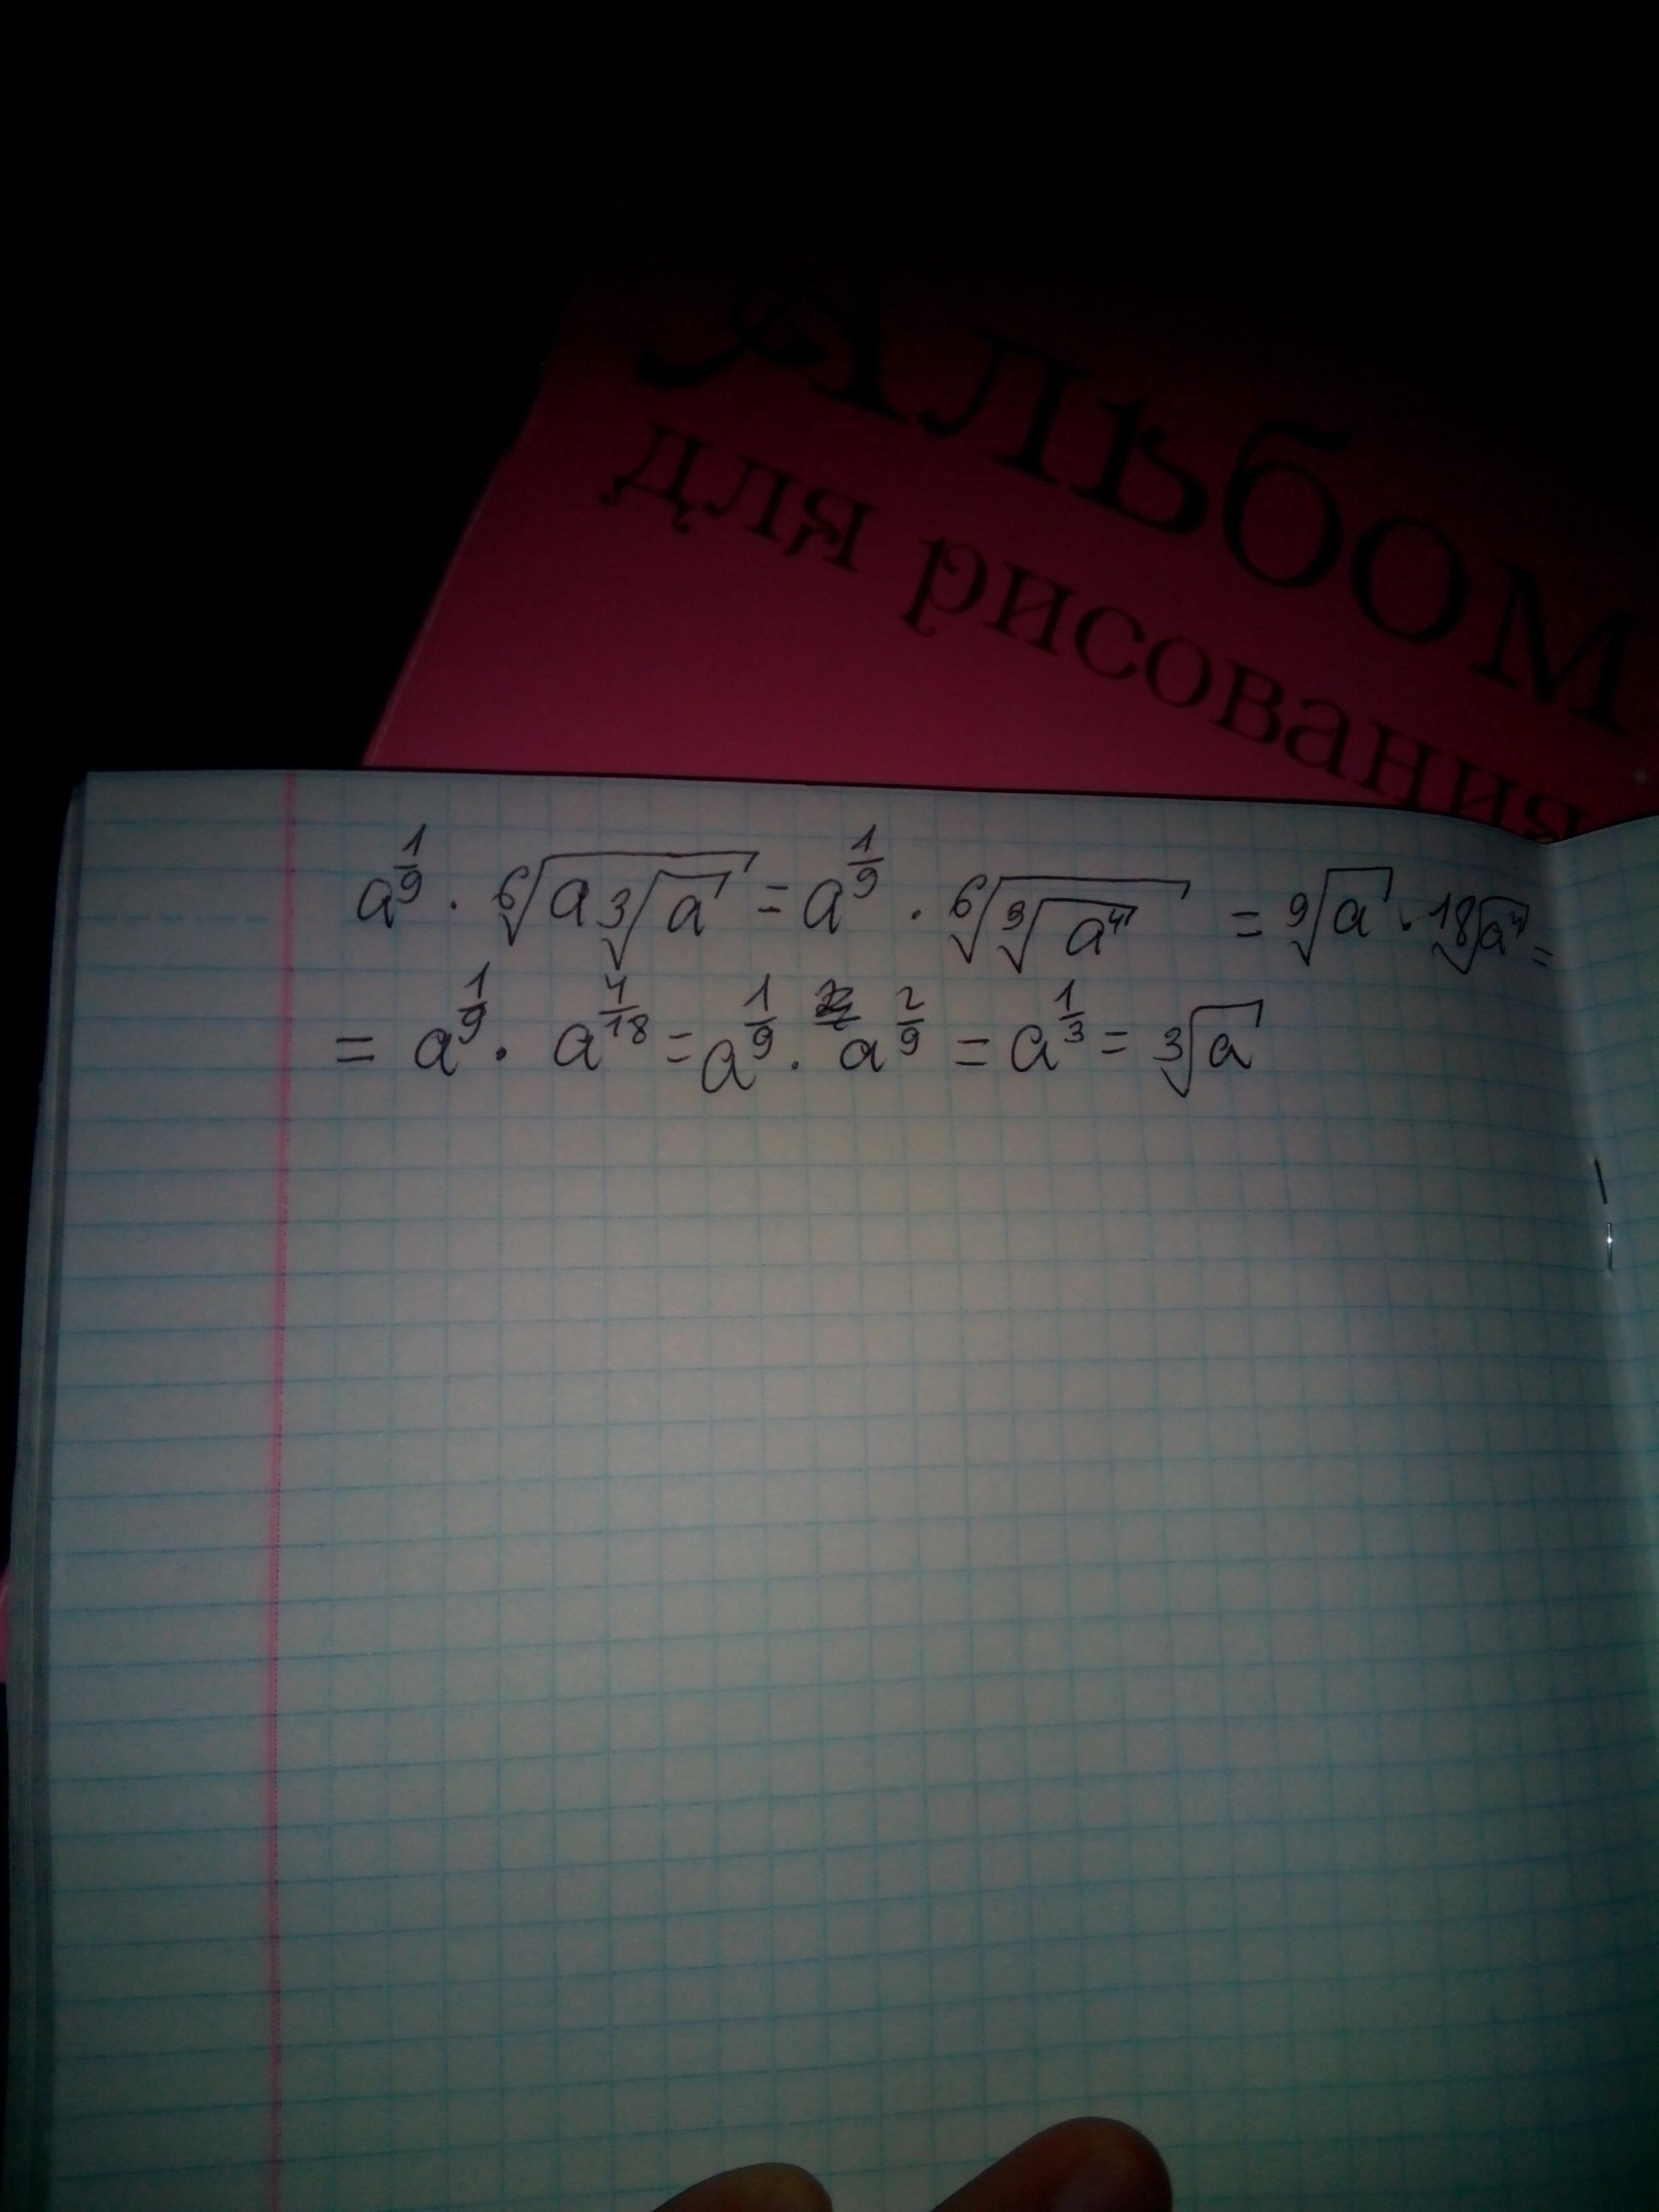 Альбом
для рисования
a^{1/9} · ⁶√(a ³√a) = a^{1/9} · ⁶√(³√(a⁴)) = ⁹√a · ¹⁸√(a⁴) =
= a^{1/9} · a^{4/18} = a^{1/9} · a^{2/9} = a^{1/3} = ³√a